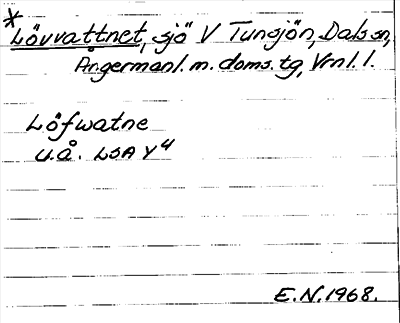 *
Lövvattnet, sjö V Tunsjön, Dals sn,
Ångermanl. m. doms. tg, Vrnl. l.
Löfwatne
u.å. LSA Y4
E.N. 1968.